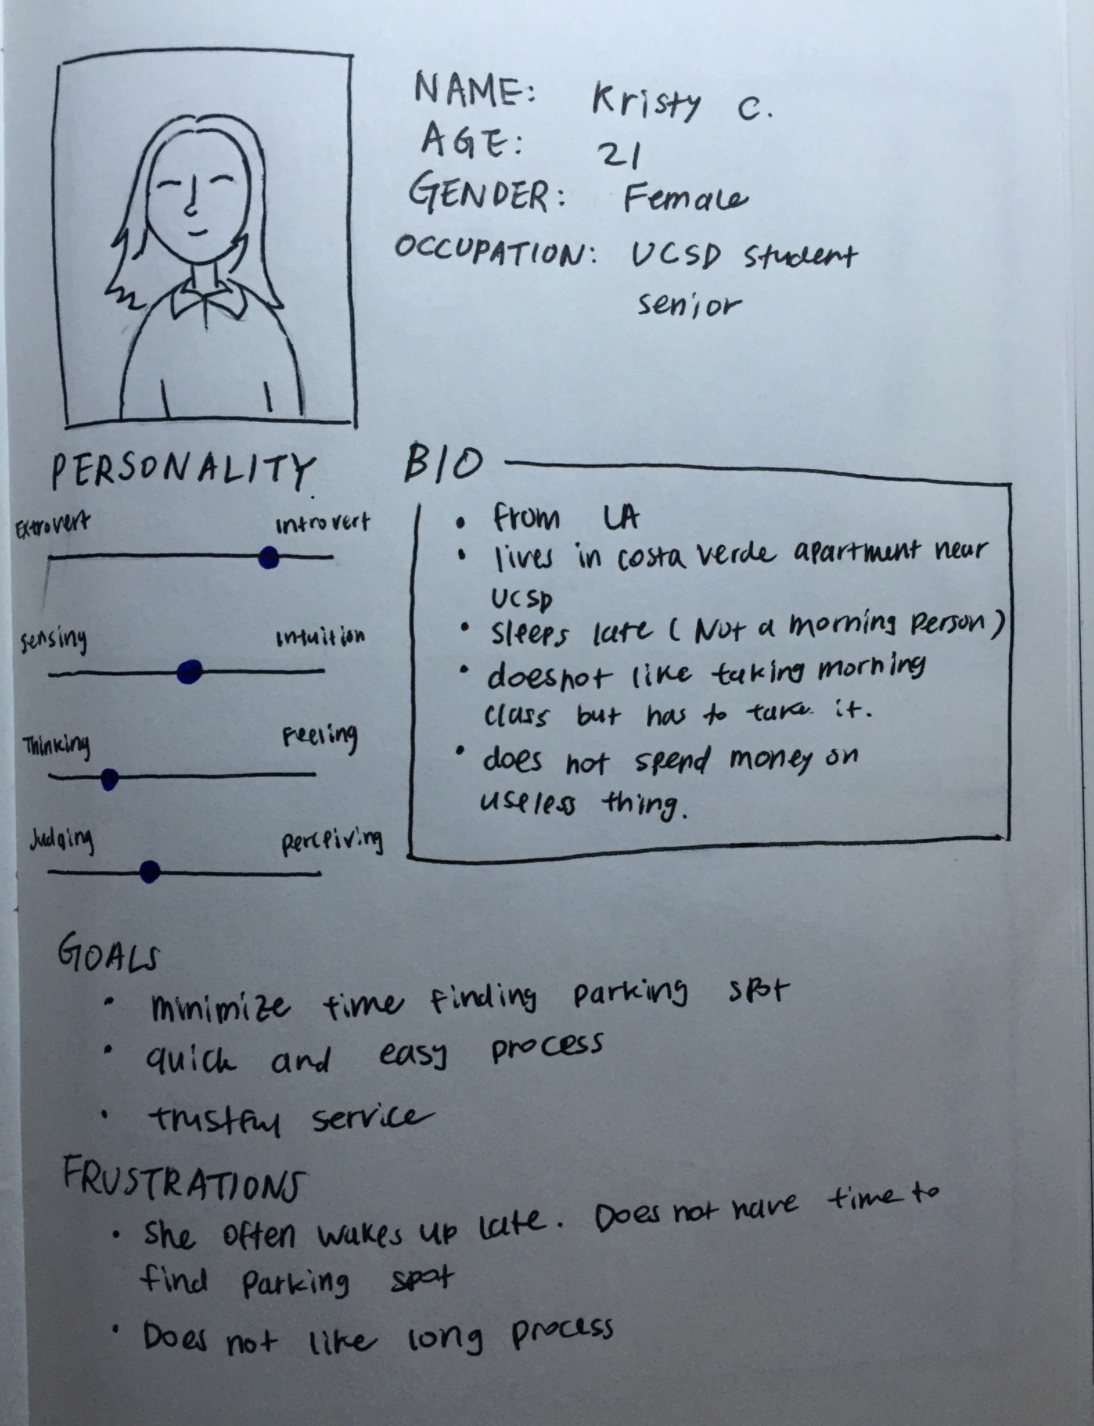 NAME: Kristy C.
AGE: 21
GENDER: Female
OCCUPATION: UCSD student
senior
PERSONALITY
Extrovert introvert
sensing intuition
Thinking Feeling
Judging perceiving
BIO
• from LA
• lives in costa verde apartment near
UCSD
• sleeps late (Not a morning person)
• doesnot like taking morning
class but has to take it.
• does not spend money on
useless thing.
GOALS
• minimize time finding parking spot
• quick and easy process
• trustful service
FRUSTRATIONS
• She often wakes up late. Does not have time to
find parking spot
• Does not like long process